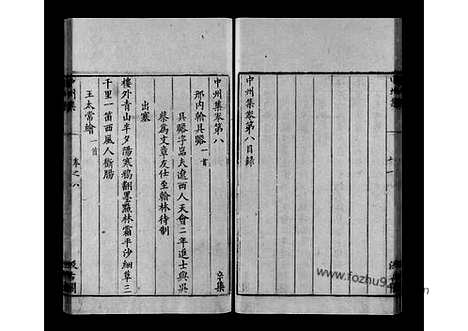 中州集卷第八目錄
中州集卷第八
辛集
那內翰具瞻一首
具瞻字喦夫遼西人天會二年進士與吳
蔡為文章友仕至翰林待制
出塞
樓外青山半夕陽寒鴉翻墨點林霜平沙細草三
千里一笛西風人斷腸
王太常繪一首
卷之八
www.fozhu9